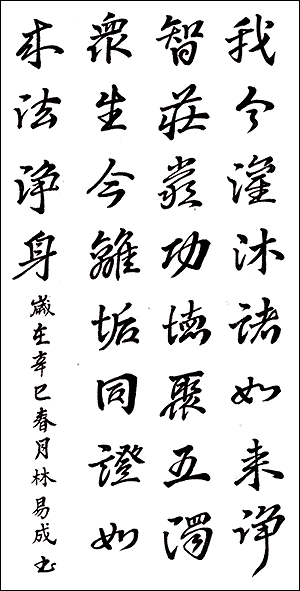 我今灌沐諸如来淨
智莊嚴功德聚五濁
衆生今離垢同證如
来法淨身
歲在辛巳春月林易成书